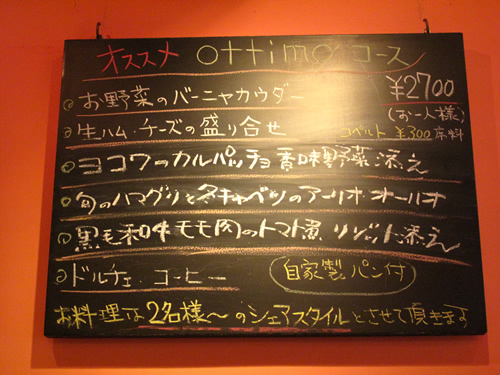 オススメ ottimo コース
・お野菜のバーニャカウダー ¥2700
(お一人様)
・生ハム・チーズの盛り合せ コペルト ¥300 席料
・ヨコワのカルパッチョ香味野菜添え
・旬のハマグリと冬キャベツのアーリオ・オーリオ
・黒毛和牛モモ肉のトマト煮 リゾット添え
・ドルチェ・コーヒー 自家製パン付
お料理は2名様〜のシェアスタイルとさせて頂きます